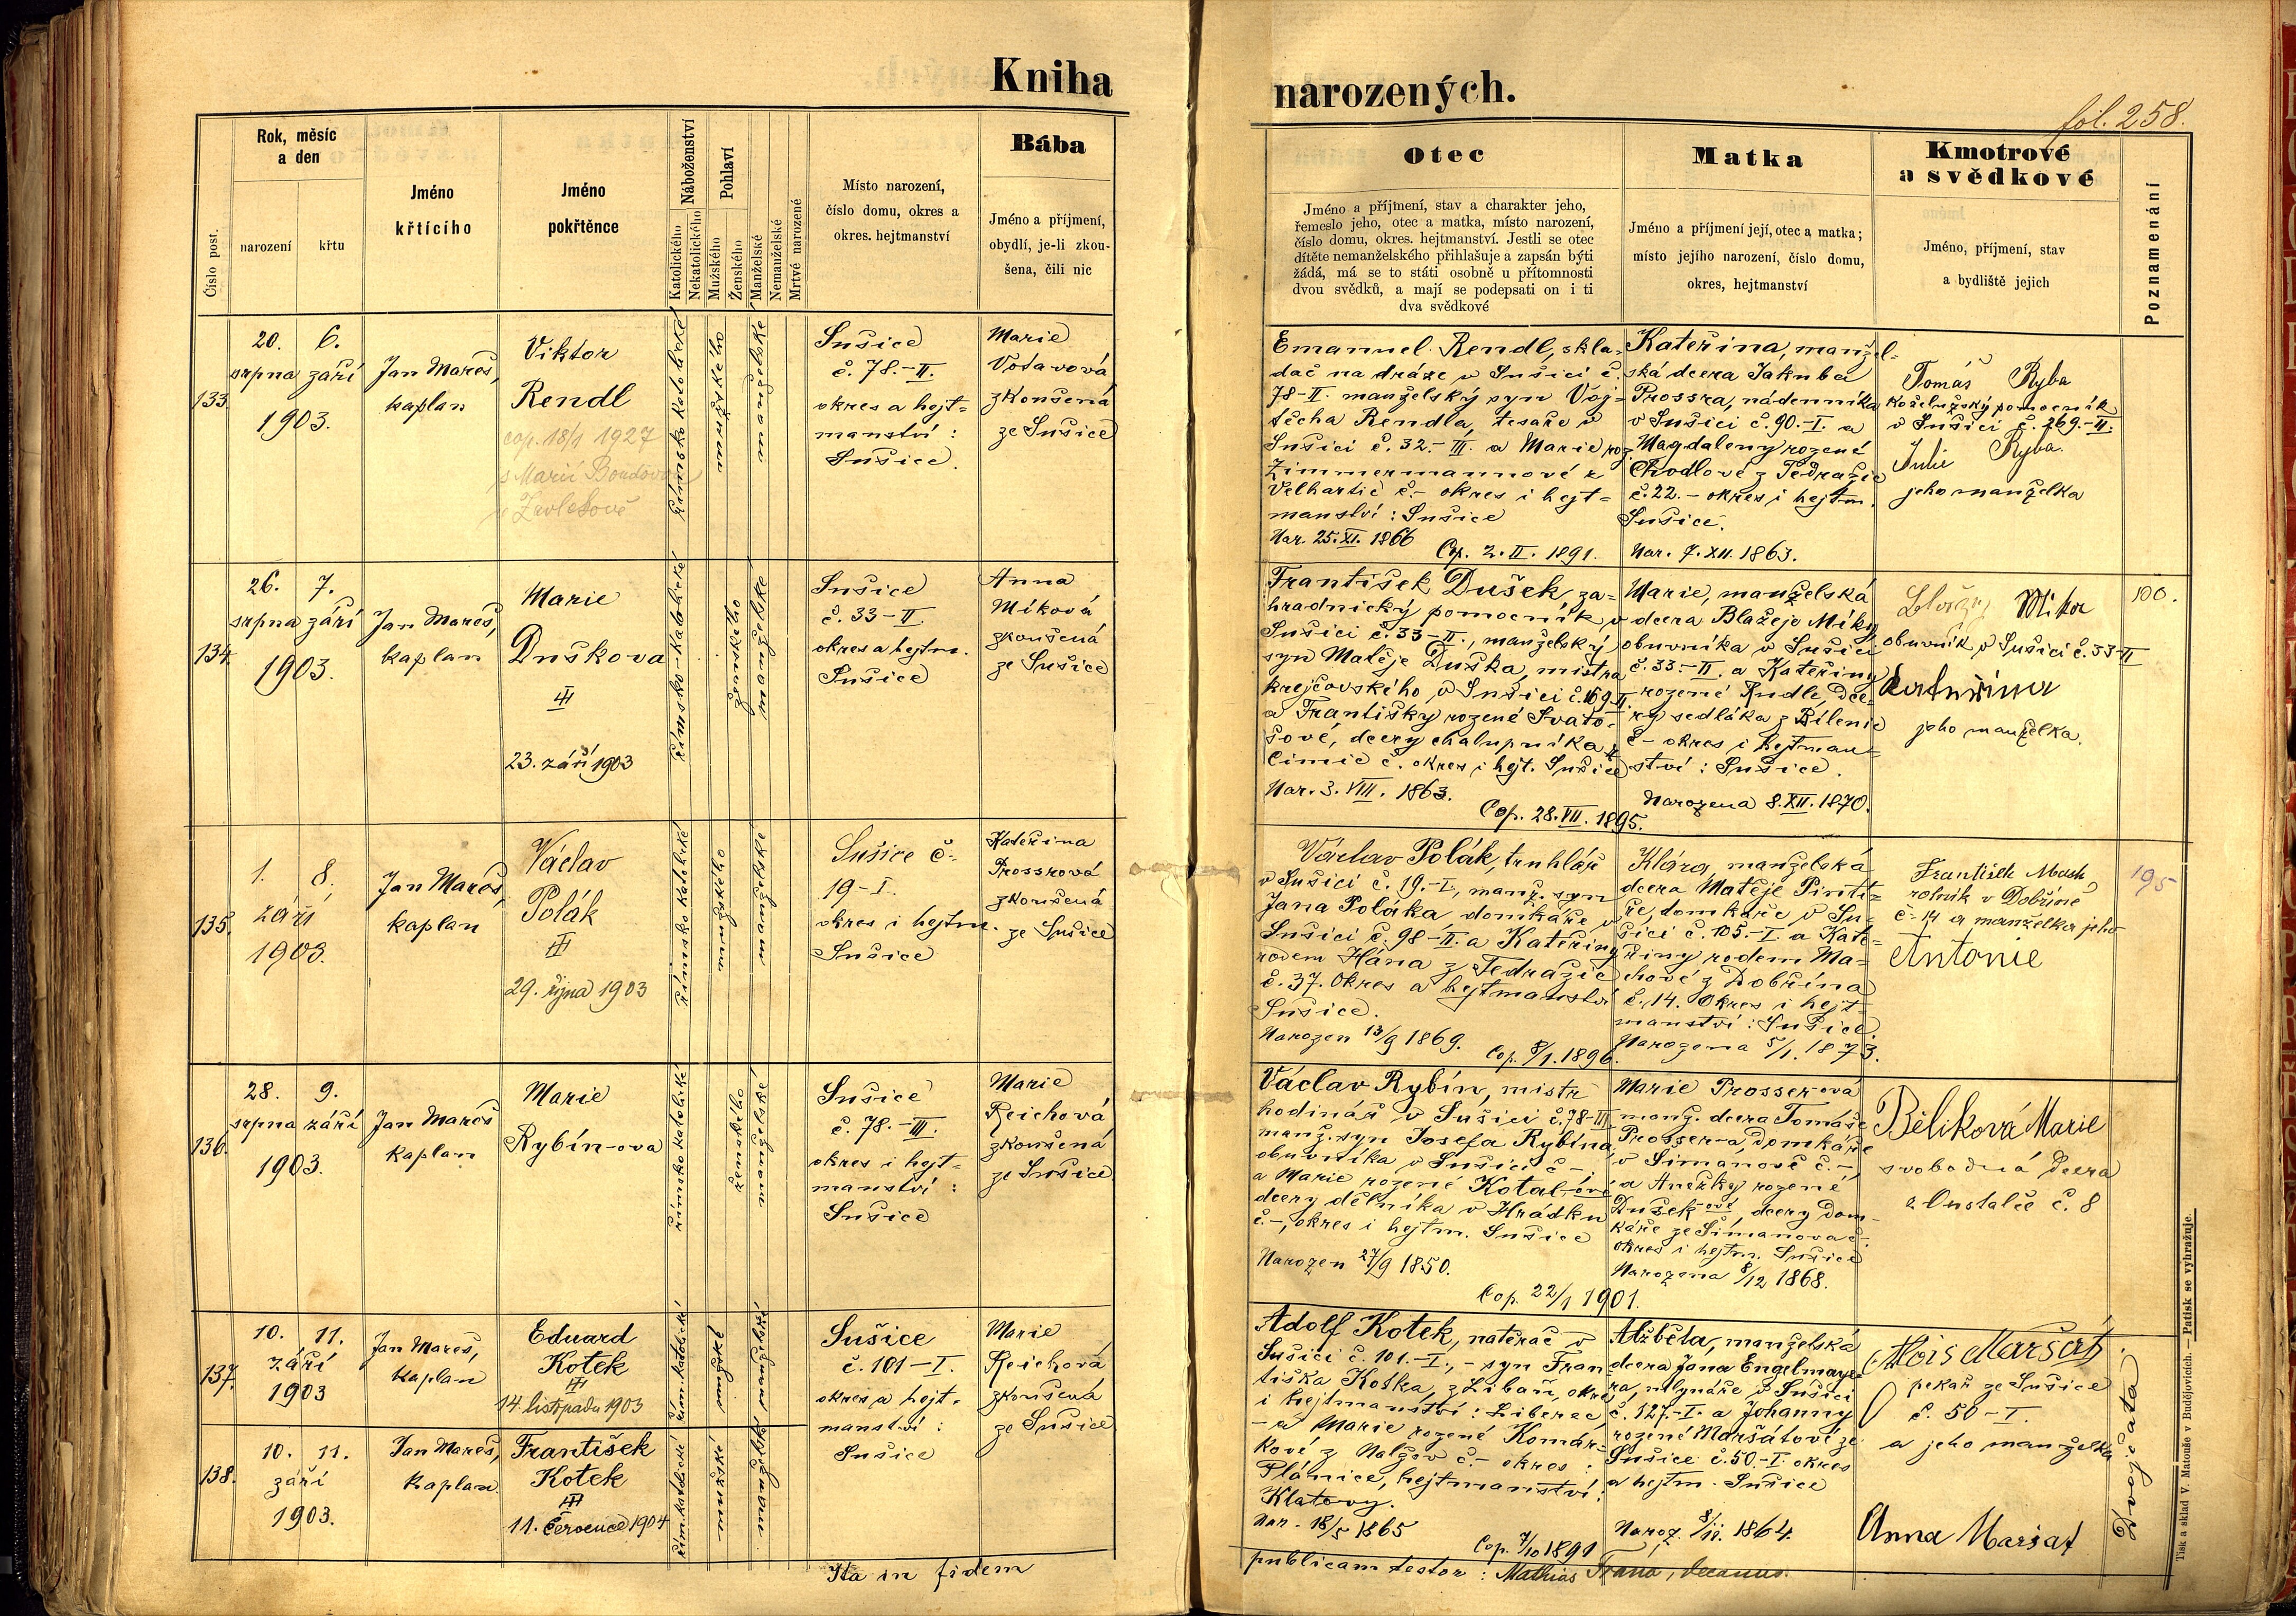 Kniha narozených.
fol. 258.
Číslo post.
Rok, měsíc
a den
narození
křtu
Jméno
křtícího
Jméno
pokřtěnce
Náboženství
Katolického
Nekatolického
Pohlaví
Mužského
Ženského
Manželské
Nemanželské
Mrtvé narozené
Místo narození,
číslo domu, okres a
okres. hejtmanství
Bába
Jméno a příjmení,
obydlí, je-li zkou-
šena, čili nic
Otec
Jméno a příjmení, stav a charakter jeho,
řemeslo jeho, otec a matka, místo narození,
číslo domu, okres. hejtmanství. Jestli se otec
dítěte nemanželského přihlašuje a zapsán býti
žádá, má se to státi osobně u přítomnosti
dvou svědků, a mají se podepsati on i ti
dva svědkové
Matka
Jméno a příjmení její, otec a matka;
místo jejího narození, číslo domu,
okres, hejtmanství
Kmotrové
a svědkové
Jméno, příjmení, stav
a bydliště jejich
Poznamenání
133.
20. 6.
srpna září
1903.
Jan Mareš,
kaplan
Viktor
Rendl
cop. 18/1 1927
s Marií
římsko katolické
mužského
manželské
Sušice
č. 78.-II.
okres a hejt=
manství :
Sušice.
Marie
Votavová
zkoušená
ze Sušice
Emanuel Rendl, skla-
dač na dráze v Sušici č.
78-II. manželský syn Voj-
těcha Rendla, tesaře v
Sušici č. 32.-III. a Marie roz.
Zimmermannové z
Velhartic č.- okres i hejt=
manství : Sušice
Nar. 25.XI. 1866
Cop. 2.II. 1891.
Kateřina, manžel-
ská dcera Jakuba
Prossra, nádenníka
v Sušici č. 90.-I. a
Magdaleny rozené
Chodlové z Tedražic
č. 22.- okres i hejtm.
Sušice.
Nar. 7.XII. 1863.
Tomáš Ryba
koželužský pomocník
v Sušici č. 269.-II.
Julie Ryba.
jeho manželka
134.
26. 7.
srpna září
1903.
Jan Mareš,
kaplan
Marie
Duškova
III
23. září 1903
římsko-katolické
ženského
manželské
Sušice
č. 33-II.
okres a hejtm.
Sušice
Anna
Míková
zkoušená
ze Sušice
František Dušek, za-
hradnický pomocník v
Sušici č. 33-II., manželský
syn Matěje Duška, mistra
krejčovského v Sušici č. 169-II.
a Františky rozené Svato-
šové, dcery chalupníka z
Čimic č. okres i hejt. Sušice
Nar. 3.VIII. 1863.
Cop. 28.VII. 1895.
Marie, manželská
dcera Blažeje Míky,
obuvníka v Sušici
č. 33.-II. a Kateřiny
rozené Rudle, dce-
ry sedláka z Bílenic
č.- okres i hejtman=
ství : Sušice.
Narozena 8.XII. 1870.
Blažej Mika
obuvník v Sušici č. 33-II
Kateřina
jeho manželka.
100.
135.
1. 8.
září
1903.
Jan Mareš,
kaplan
Václav
Polák
III
29. října 1903
římsko katolické
mužského
manželské
Sušice č.
19-I.
okres i hejtm.
Sušice
Kateřina
Prossrová
zkoušená
ze Sušice
Václav Polák, truhlář
v Sušici č. 19.-I., manž. syn
Jana Poláka, domkáře v
Sušici č. 98-II. a Kateřiny
rodem Hána z Tedražic
č. 37. Okres a hejtmanství
Sušice.
Narozen 13/9 1869.
Cop. 8/1. 1896.
Klára, manželská
dcera Matěje Pintí=
ře, domkáře v Su-
šici č. 105.-I. a Kate=
řiny rodem Ma=
chové z Dobřína
č. 14. Okres i hejt=
manství : Sušice.
Narozena 5/1. 1873.
František Mach,
rolník v Dobříně
č. 14 a manželka jeho
Antonie
195
136.
28. 9.
srpna září
1903.
Jan Mareš
kaplan
Marie
Rybín-ova
římsko katolické
ženského
manželské
Sušice
č. 78.-III.
okres i hejt=
manství :
Sušice
Marie
Reichová
zkoušená
ze Sušice
Václav Rybín, mistr
hodinář v Sušici č. 78-III
manž. syn Josefa Rybína,
obuvníka v Sušici č.-,
a Marie rozené Kotal-ové
dcery dělníka v Hrádku
č.-, okres i hejtm. Sušice
Narozen 27/9 1850.
Cop. 22/1 1901.
Marie Prosser-ová
manž. dcera Tomáše
Prosser-a, domkáře
v Šimanově č.-
a Anežky rozené
Dušek-ové, dcery dom-
káře ze Šimanova č.-
okres i hejtm. Sušice
Narozena 8/12 1868.
Běliková Marie
svobodná dcera
č. 8
137.
10. 11.
září
1903
Jan Mareš,
kaplan
Eduard
Kotek
III
14. listopadu 1903
řím. katolické
mužské
manželské
Sušice
č. 101-I.
okres a hejt-
manství :
Sušice
Marie
Reichová
zkoušená
ze Sušice
Adolf Kotek, natěrač v
Sušici č. 101.-I., - syn Fran
tiška Kotka, z Libaň, okres
i hejtmanství : Liberec
- a Marie rozené Komár-
kové z Nalžov č.- okres :
Plánice, hejtmanství :
Klatovy.
Nar. 18/5 1865
Cop. 7/10 1891
Alžběta, manželská
dcera Jana Engelmaye-
ra, mlynáře v Sušici
č. 127.-I. a Johanny
rozené Maršátové ze
Sušice č. 50.-I. okres
a hejtm. Sušice
Naroz. 8/11. 1864.
Alois Maršat
pekař ze Sušice
č. 50-I.
a jeho manželka
Anna Maršat
Dvojčata
138.
10. 11.
září
1903.
Jan Mareš,
kaplan.
František
Kotek
III
11. července 1904
řím. katolické
mužské
manželské
Ita in fidem publicam testor : Mathias Frána, decanus.
Tisk a sklad V. Matouše v Budějovicích. — Patisk se vyhražuje.